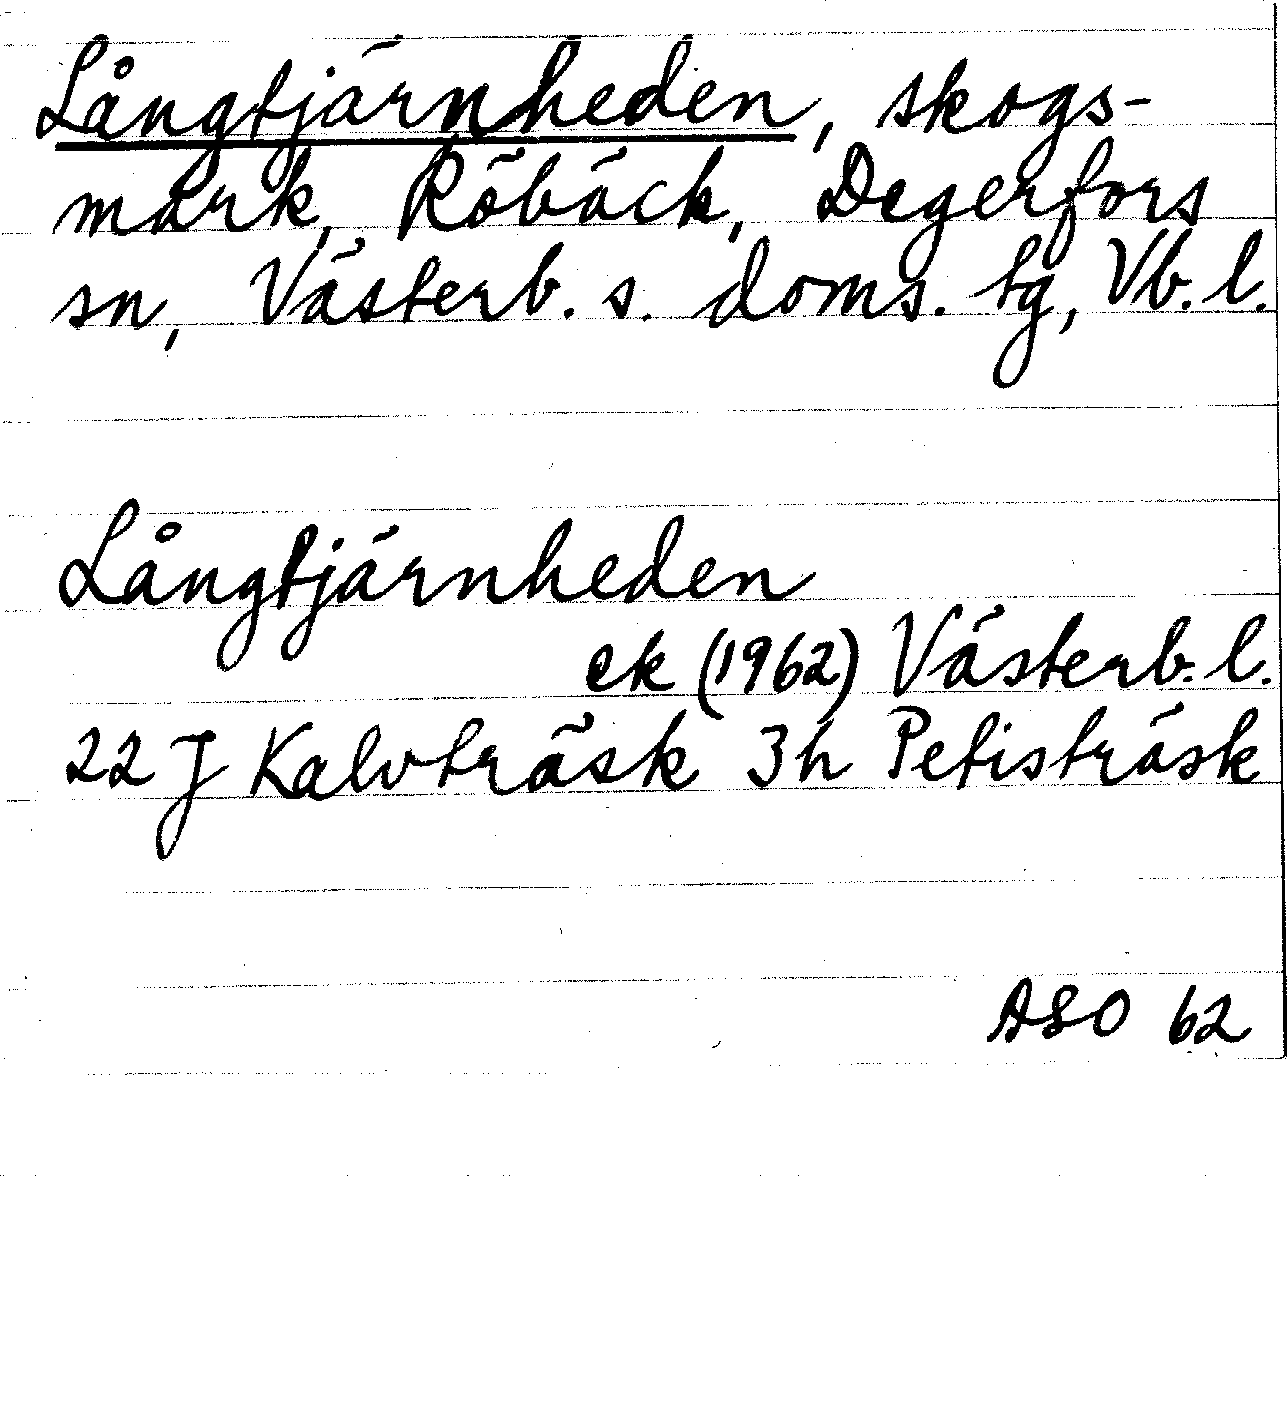 Långtjärnheden, skogs-
mark, Röbäck, Degerfors
sn, Västerb. s. doms. tg, Vb. l.
Långtjärnheden
ek (1962) Västerb. l.
22 J Kalvträsk 3h Petisträsk
ASO 62